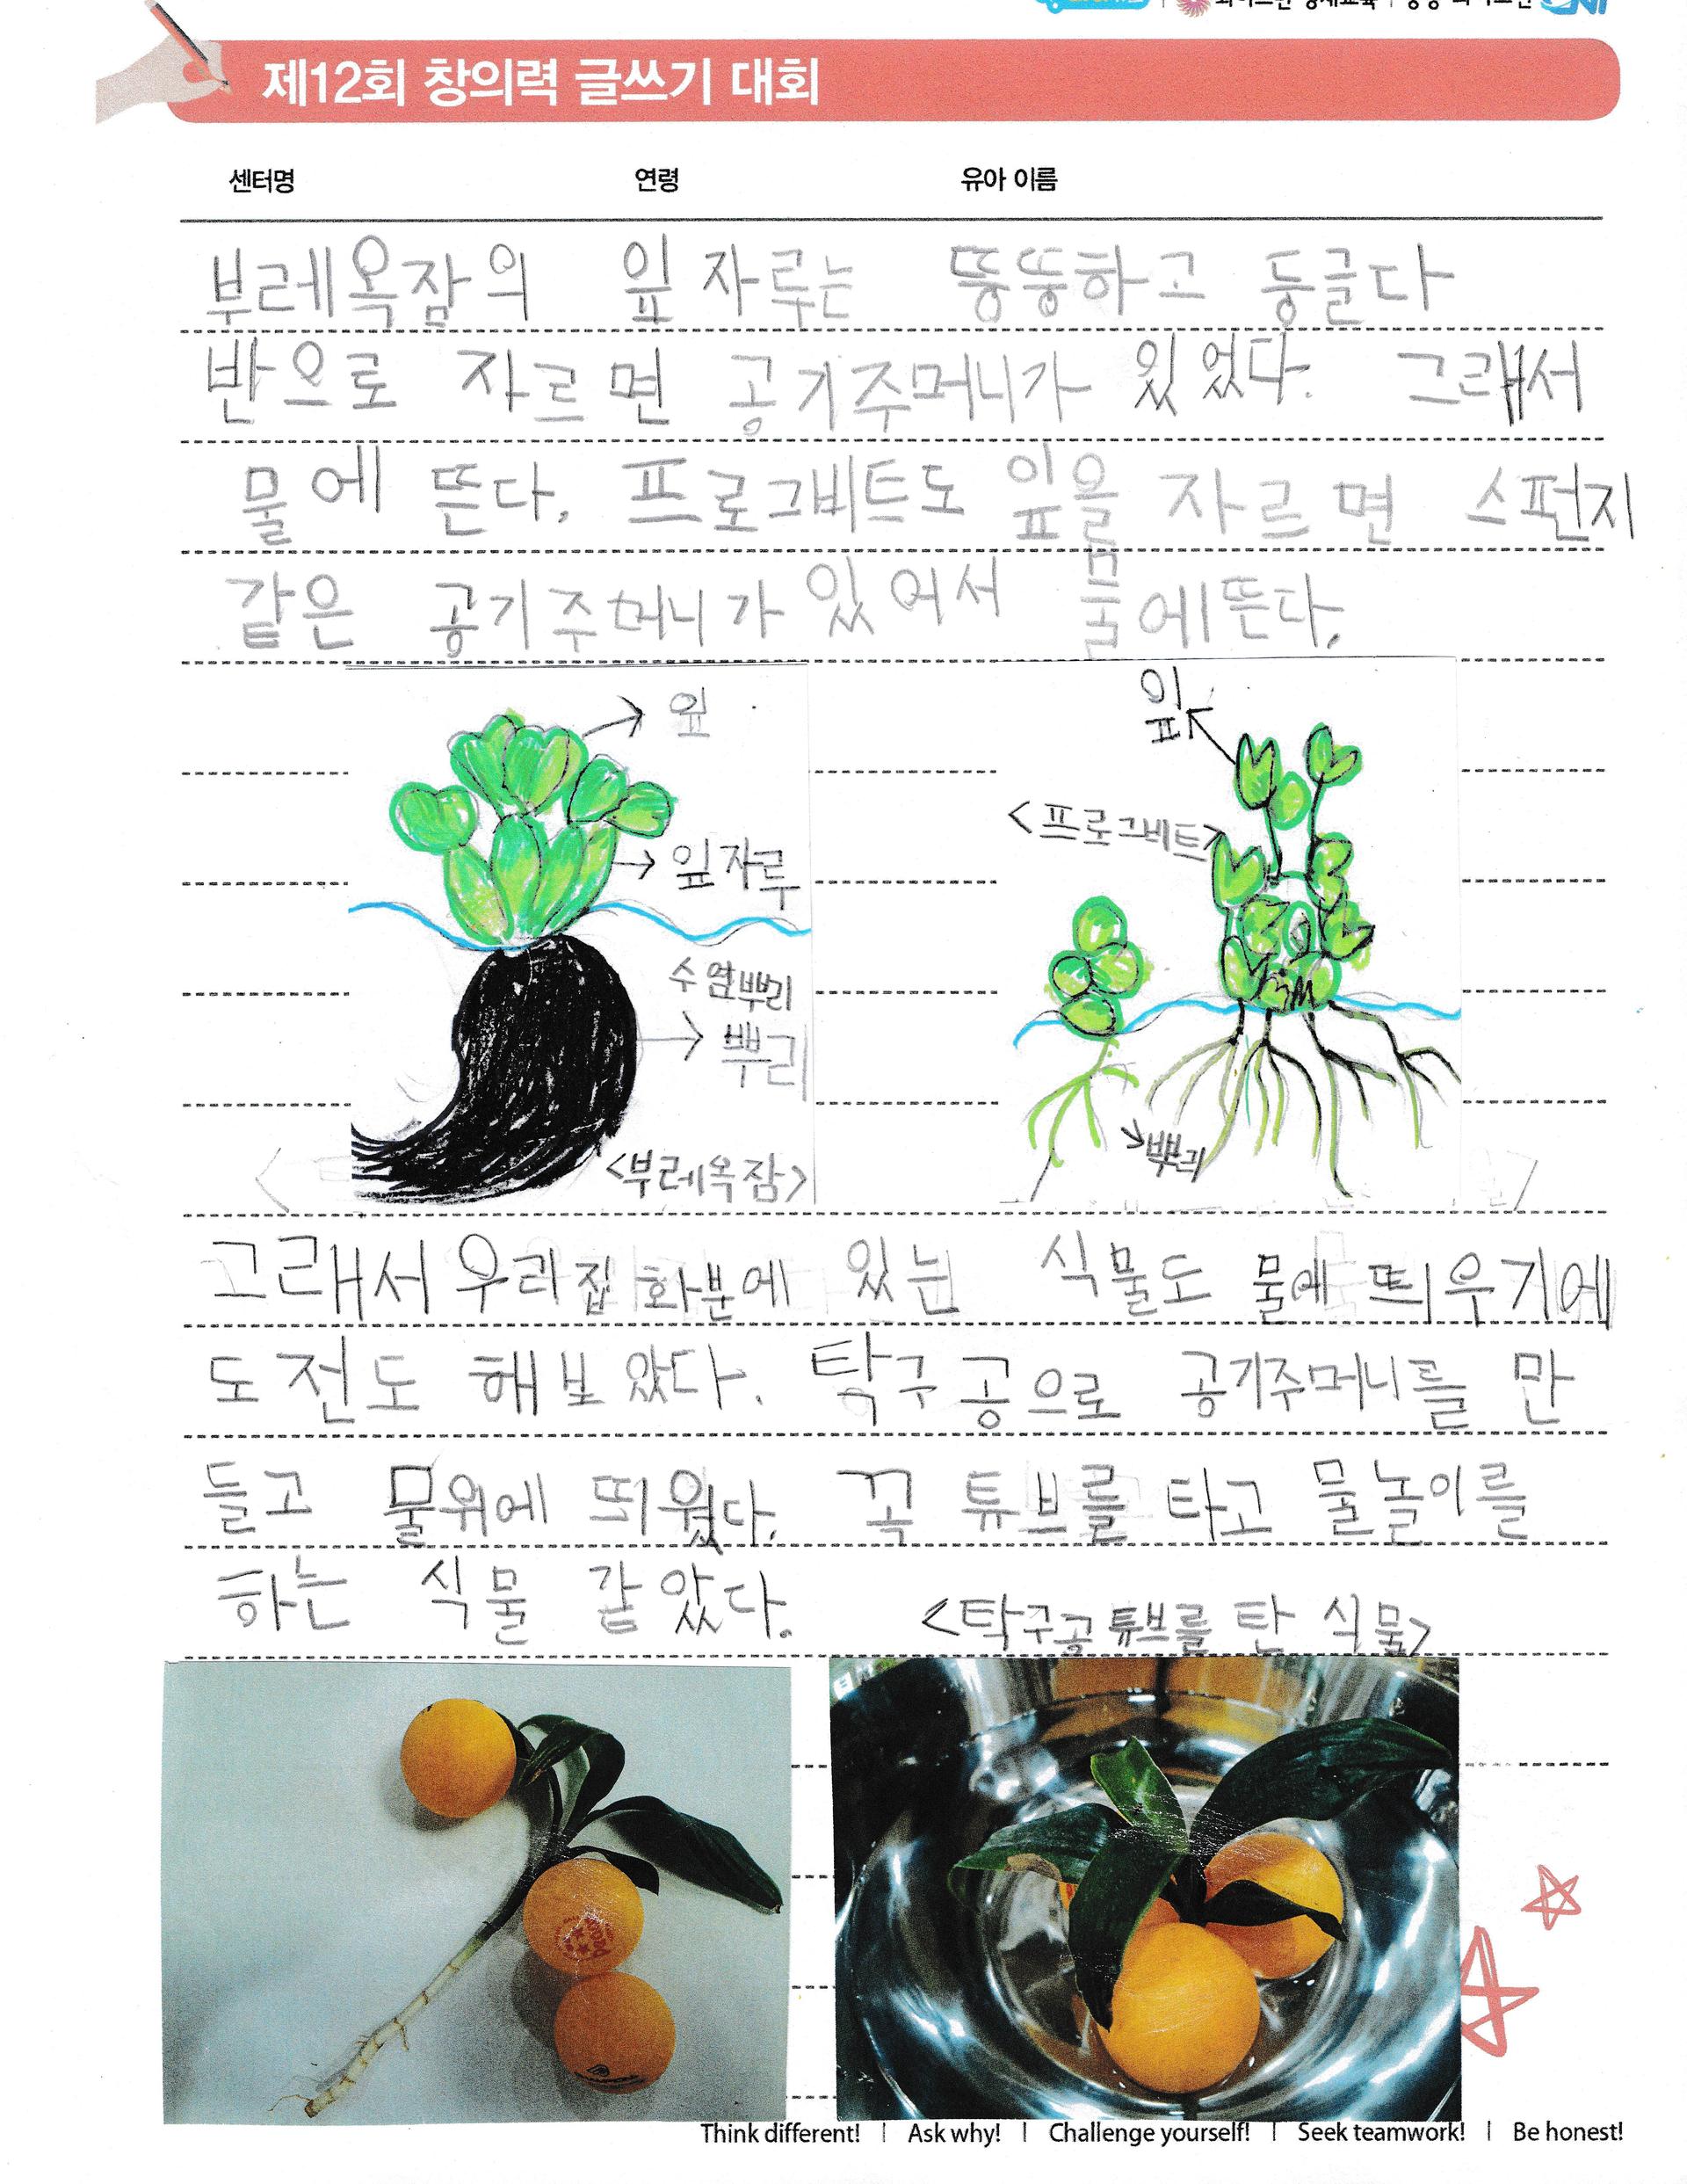 제12회 창의력 글쓰기 대회
센터명 연령 유아 이름
부레옥잠의 잎자루는 뚱뚱하고 둥글다
반으로 자르면 공기주머니가 있었다. 그래서
물에 뜬다. 프로그비트도 잎을 자르면 스펀지
같은 공기주머니가 있어서 물에뜬다.
잎
잎자루
수염뿌리
뿌리
<부레옥잠>
잎
<프로그비트>
뿌리
그래서 우리집 화분에 있는 식물도 물에 띄우기에
도전도 해보았다. 탁구공으로 공기주머니를 만
들고 물위에 띄웠다. 꼭 튜브를 타고 물놀이를
하는 식물 같았다.
<탁구공 튜브를 탄 식물>
Think different! | Ask why! | Challenge yourself! | Seek teamwork! | Be honest!